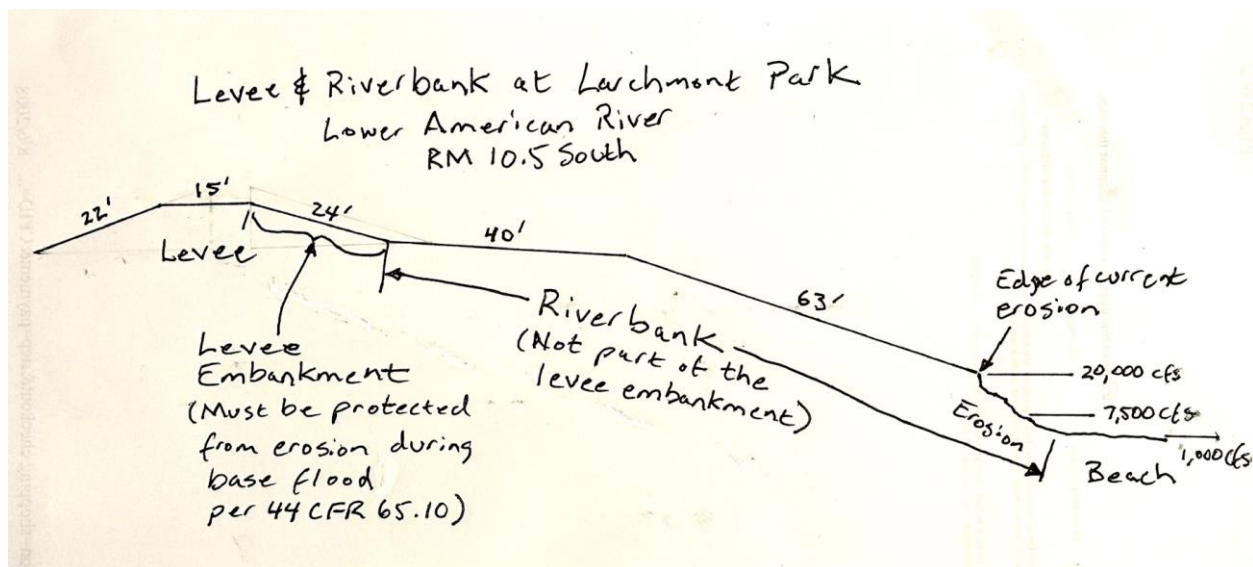 Levee & Riverbank at Larchmont Park
Lower American River
RM 10.5 South
22'
15'
24'
40'
63'
Levee
Levee
Embankment
(Must be protected
from erosion during
base flood
per 44 CFR 65.10)
Riverbank
(Not part of the
levee embankment)
Edge of current
erosion
20,000 cfs
7,500 cfs
1,000 cfs
Erosion
Beach